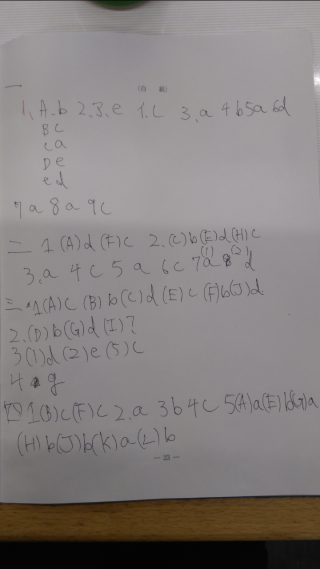 一
1. A.b 2.B.e 1.c 3.a 4b5a6d
B c
C a
D e
e d
7a 8a 9c
二 1(A)d(F)c 2.(C)b(E)d(H)c
3.a 4c 5a 6c 7(1)a 8(2)d
三 1(A)c (B)b(C)d(E)c(F)b(J)d
2.(D)b(G)d(I)?
3(1)d(2)e(5)c
4 g
四1(B)c(F)c 2.a 3b4c 5(A)a(E)b(G)a
(H)b(J)b(K)a(L)b